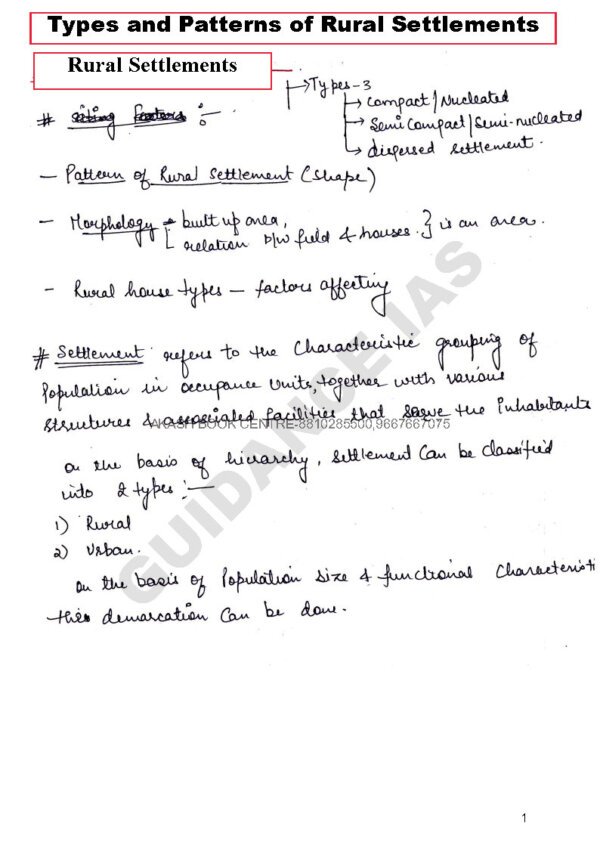 Types and Patterns of Rural Settlements
Rural Settlements
→ Types - 3
→ Compact/Nucleated
→ Semi Compact/Semi-nucleated
→ dispersed settlement.
# Siting factors :-
- Pattern of Rural Settlement (Shape)
- Morphology → built up area,
relation b/w field & houses. } is an area.
- Rural house types - factors affecting
# Settlement refers to the characteristic grouping of
Population in occupance units, together with various
structures & associated facilities that serve the Inhabitants
AKASH BOOK CENTRE-8810285500,9667667075
on the basis of hierarchy, settlement can be classified
into 2 types :-
1) Rural
2) Urban.
on the basis of Population size & functional characteristi
this demarcation can be done.
GUIDANCE IAS
1